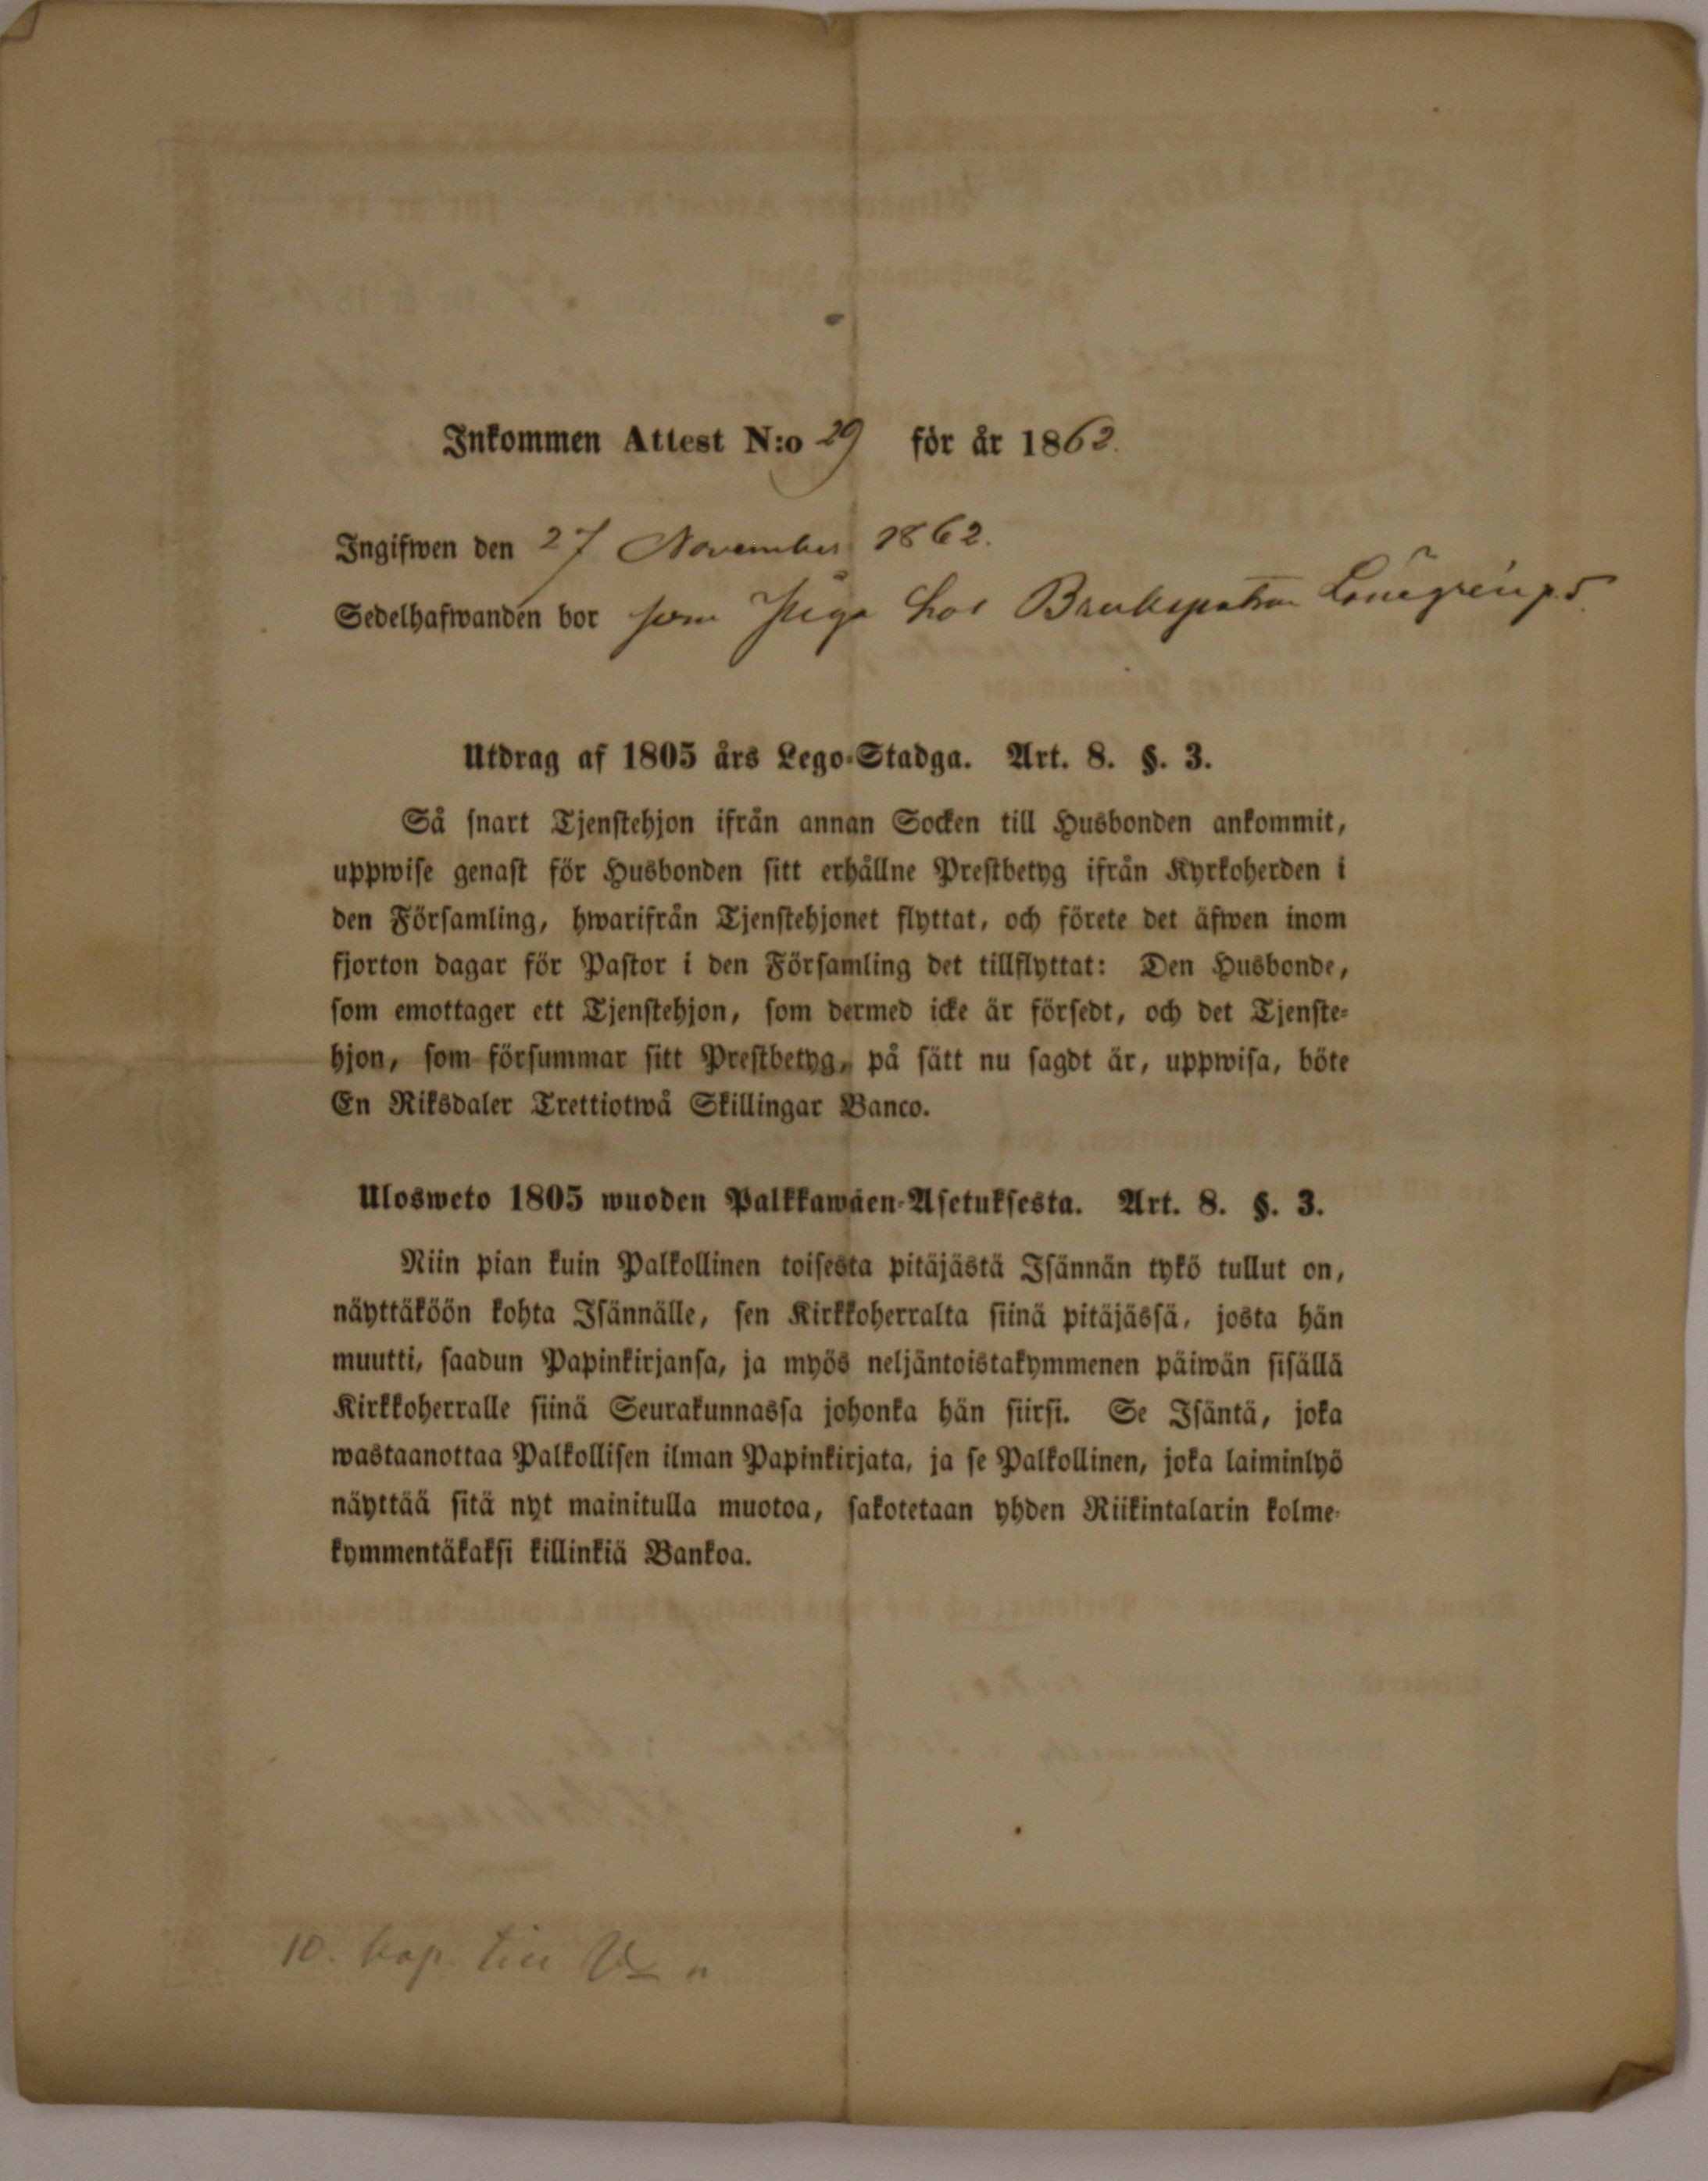 Inkommen Attest N:o 29 för år 1862.
Ingifwen den 27 November 1862.
Sedelhafwanden bor som Piga hos Brukspatron
Utdrag af 1805 års Lego-Stadga. Art. 8. §. 3.
Så snart Tjenstehjon ifrån annan Socken till Husbonden ankommit,
uppwise genast för Husbonden sitt erhållne Prestbetyg ifrån Kyrkoherden i
den Församling, hwarifrån Tjenstehjonet flyttat, och förete det äfwen inom
fjorton dagar för Pastor i den Församling det tillflyttat: Den Husbonde,
som emottager ett Tjenstehjon, som dermed icke är försedt, och det Tjenste-
hjon, som försummar sitt Prestbetyg, på sätt nu sagdt är, uppwisa, böte
En Riksdaler Trettiotwå Skillingar Banco.
Ulosweto 1805 wuoden Palkkawäen-Asetuksesta. Art. 8. §. 3.
Niin pian kuin Palkollinen toisesta pitäjästä Isännän tykö tullut on,
näyttäköön kohta Isännälle, sen Kirkkoherralta siinä pitäjässä, josta hän
muutti, saadun Papinkirjansa, ja myös neljäntoistakymmenen päiwän sisällä
Kirkkoherralle siinä Seurakunnassa johonka hän siirsi. Se Isäntä, joka
wastaanottaa Palkollisen ilman Papinkirjata, ja se Palkollinen, joka laiminlyö
näyttää sitä nyt mainitulla muotoa, sakotetaan yhden Riikintalarin kolme-
kymmentäkaksi killinkiä Bankoa.
10. kop.